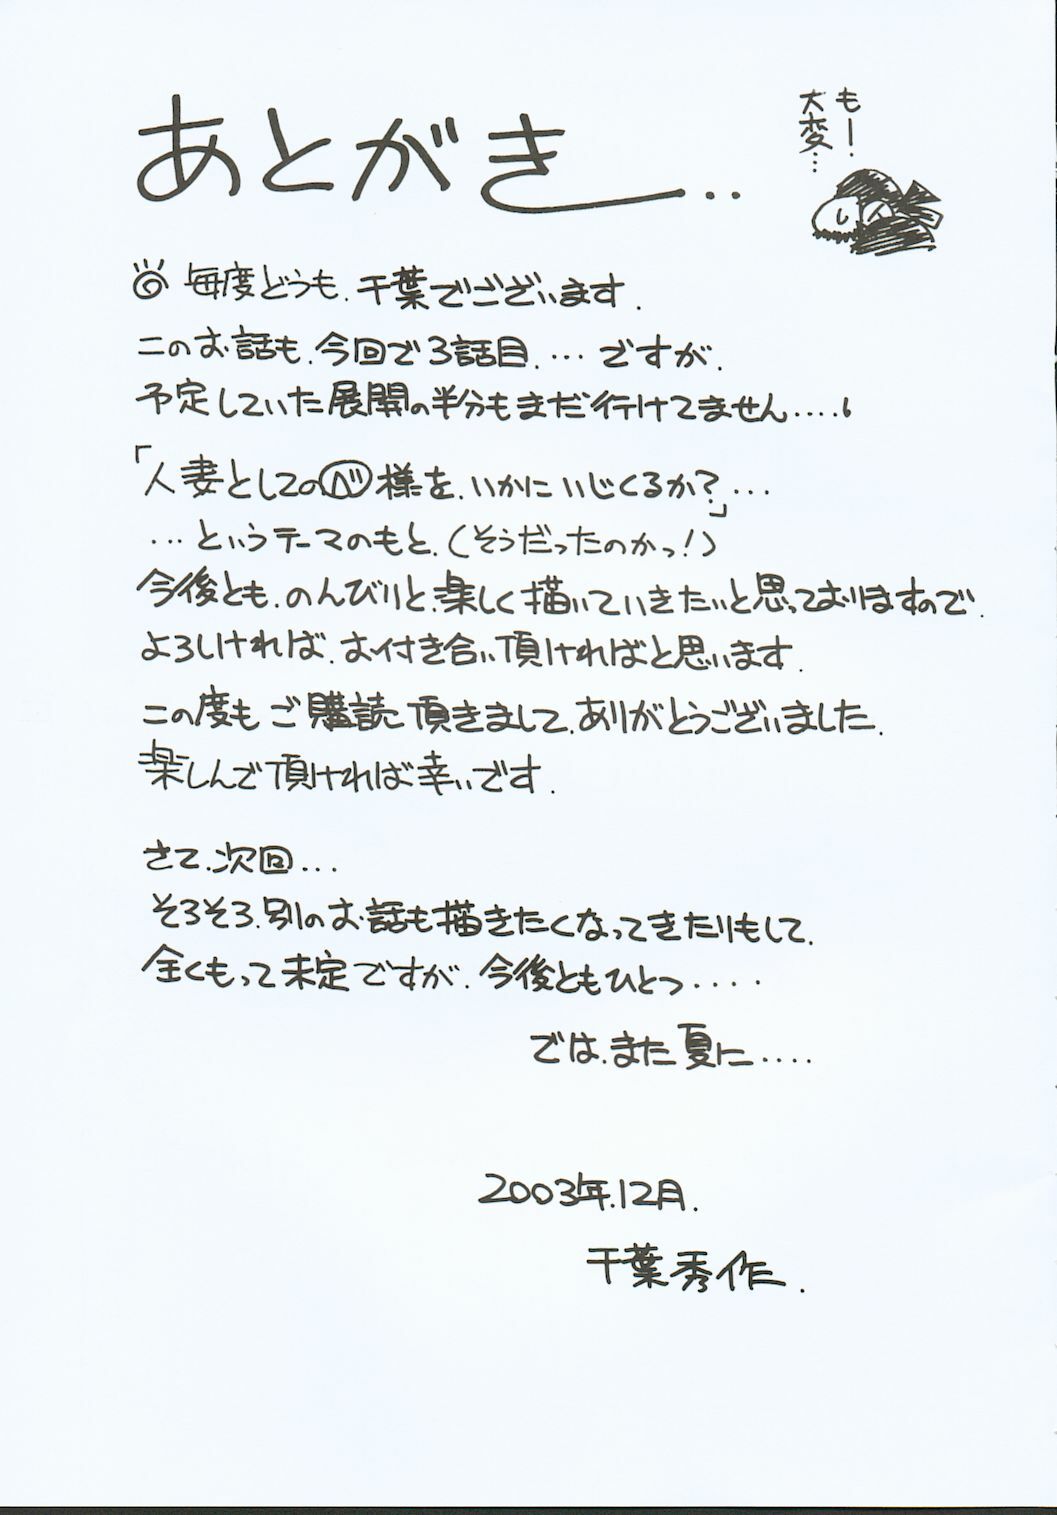 あとがき..
もー!
大変…
◎ 毎度どうも、千葉でございます.
このお話も、今回で3話目、… ですが、
予定していた展開の半分もまだ行けてません....。
「人妻としてのベ様を、いかにいじくるか?…」
…というテーマのもと、(そうだったのかっ!)
今後とも、のんびりと、楽しく描いていきたいと思っておりますので、
よろしければ、お付き合い頂ければと思います.
この度もご購読頂きまして、ありがとうございました.
楽しんで頂ければ幸いです.
さて、次回…
そろそろ、別のお話も描きたくなってきたりもして、
全くもって未定ですが、今後ともひとつ....
では、また夏に....
2003年、12月.
千葉秀作.